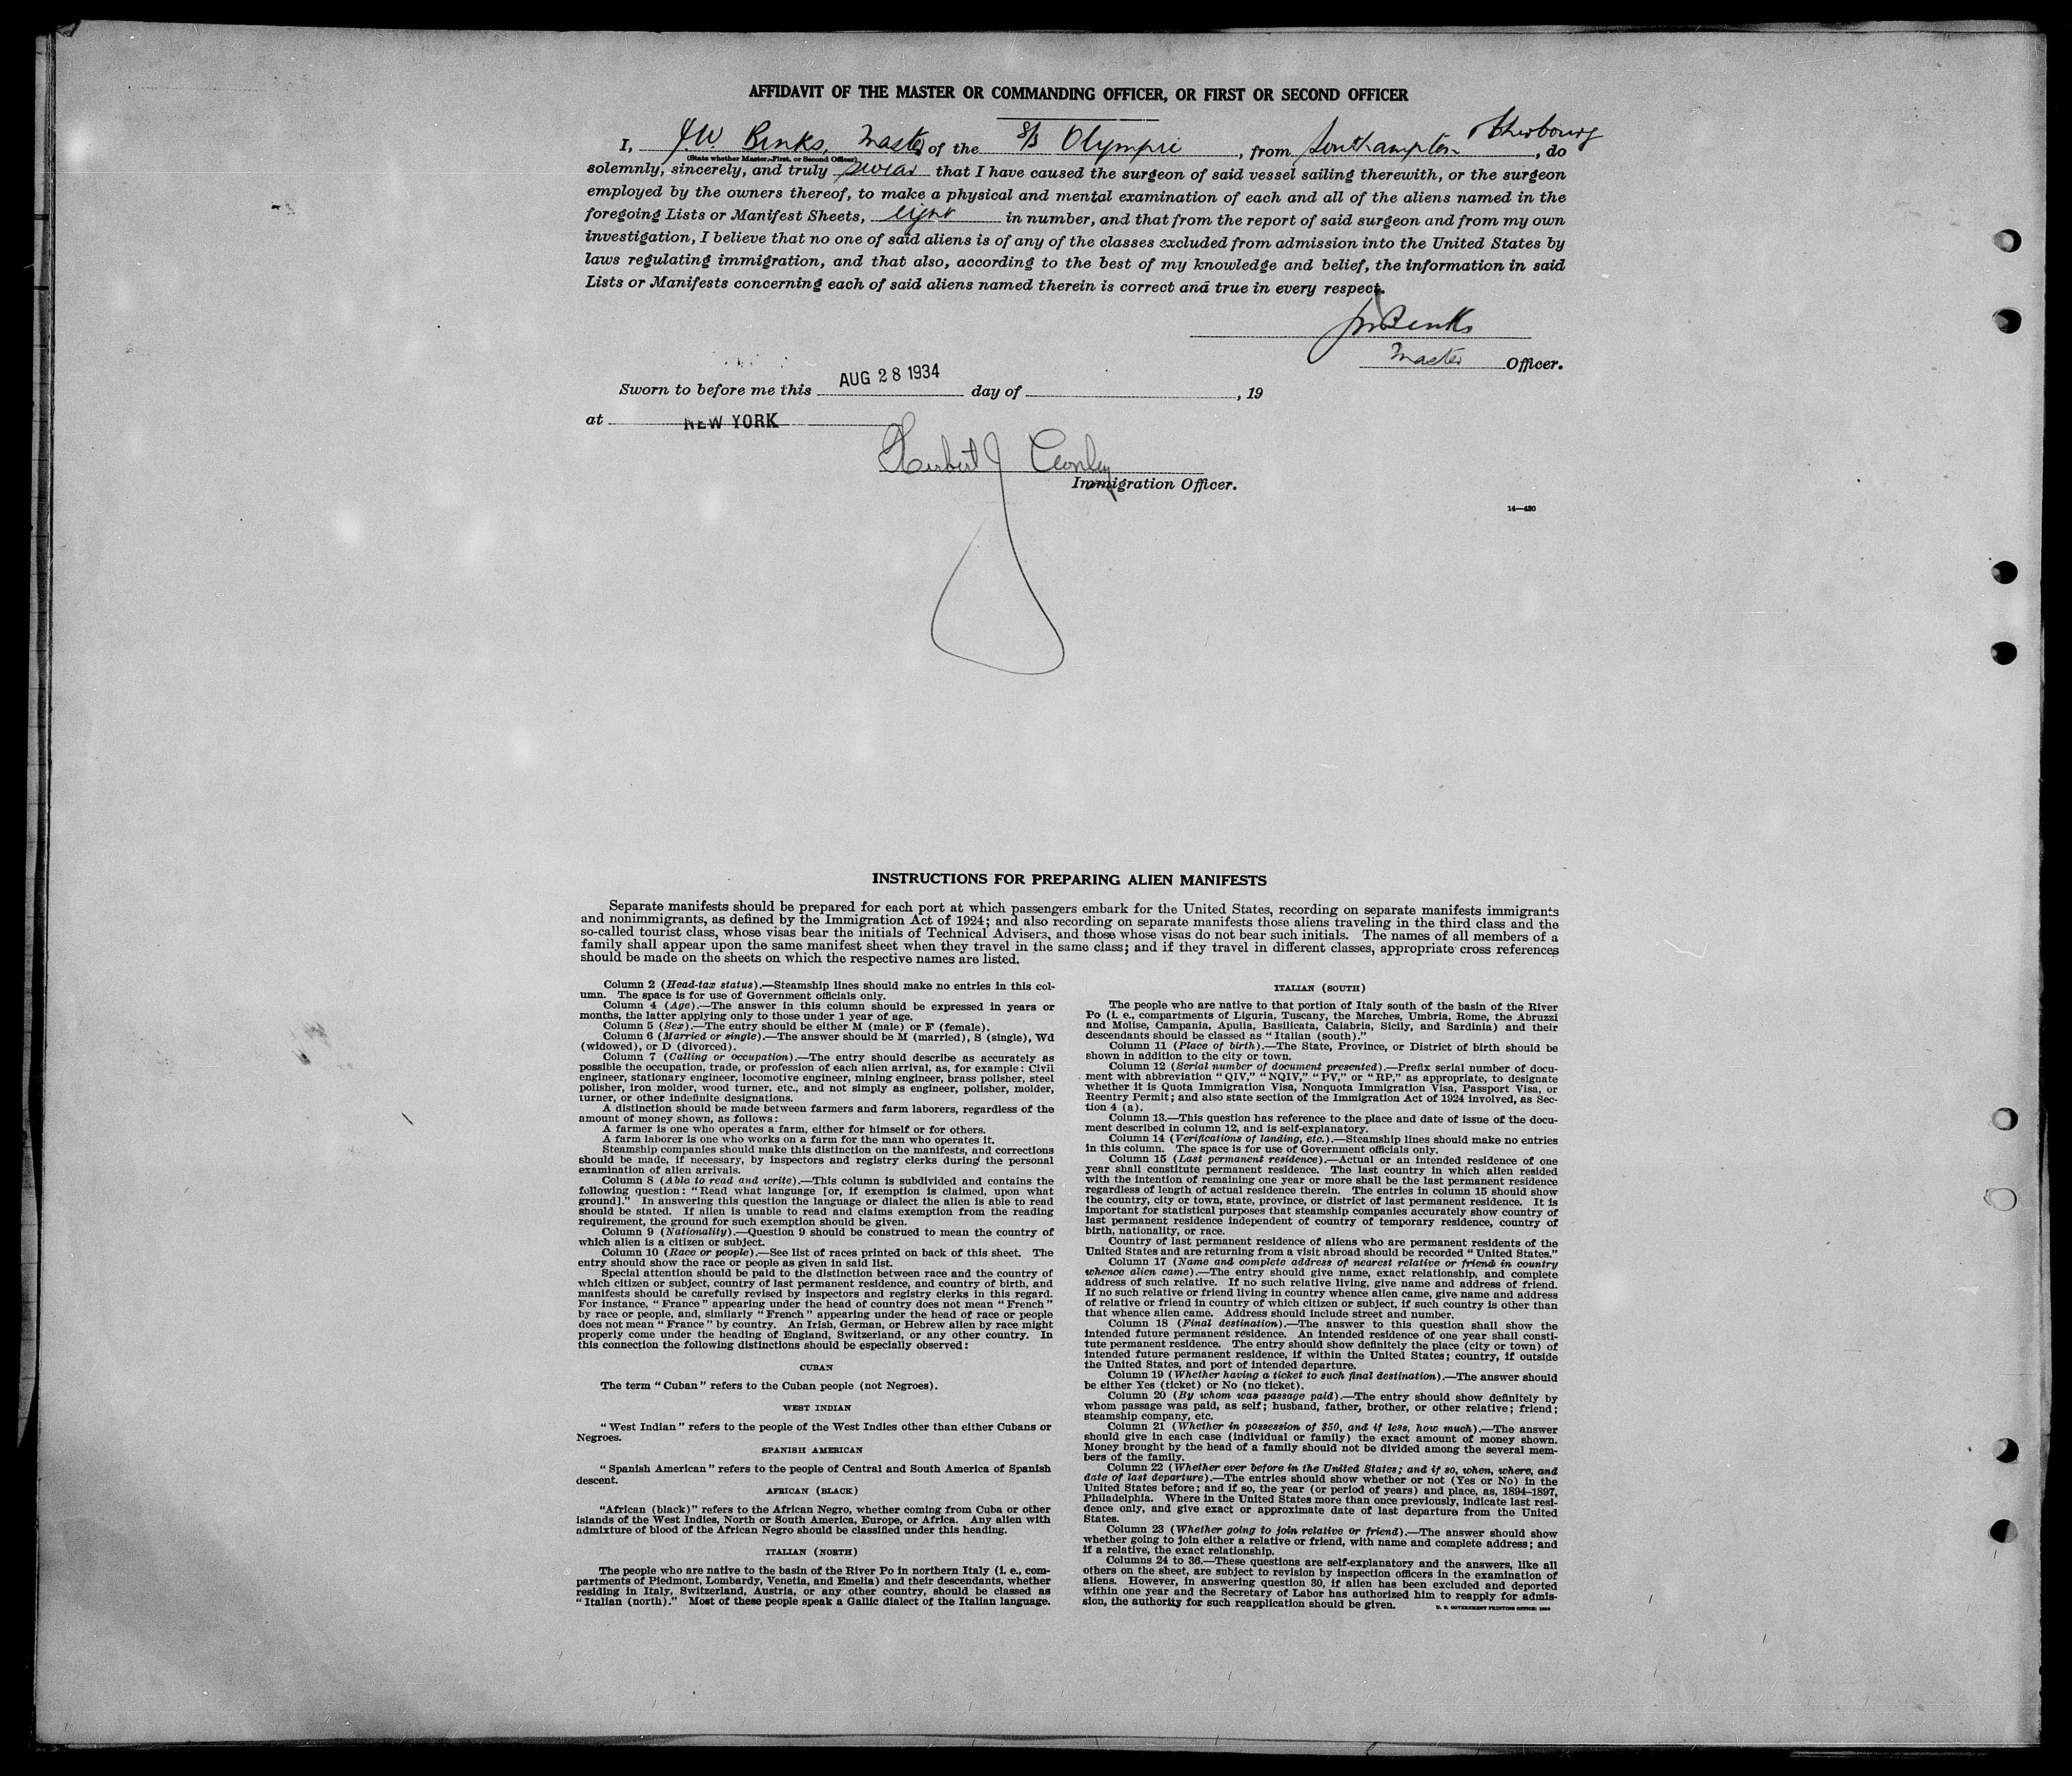 AFFIDAVIT OF THE MASTER OR COMMANDING OFFICER, OR FIRST OR SECOND OFFICER
I, J.W. Binks, Master of the S/S Olympic, from Southampton & Cherbourg, do
(State whether Master, First, or Second Officer)
solemnly, sincerely, and truly swear that I have caused the surgeon of said vessel sailing therewith, or the surgeon
employed by the owners thereof, to make a physical and mental examination of each and all of the aliens named in the
foregoing Lists or Manifest Sheets, eight in number, and that from the report of said surgeon and from my own
investigation, I believe that no one of said aliens is of any of the classes excluded from admission into the United States by
laws regulating immigration, and that also, according to the best of my knowledge and belief, the information in said
Lists or Manifests concerning each of said aliens named therein is correct and true in every respect.
JW Binks
Master Officer.
Sworn to before me this AUG 28 1934 day of , 19
at NEW YORK
Herbert J
Immigration Officer.
14—430
INSTRUCTIONS FOR PREPARING ALIEN MANIFESTS
Separate manifests should be prepared for each port at which passengers embark for the United States, recording on separate manifests immigrants
and nonimmigrants, as defined by the Immigration Act of 1924; and also recording on separate manifests those aliens traveling in the third class and the
so-called tourist class, whose visas bear the initials of Technical Advisers, and those whose visas do not bear such initials. The names of all members of a
family shall appear upon the same manifest sheet when they travel in the same class; and if they travel in different classes, appropriate cross references
should be made on the sheets on which the respective names are listed.
Column 2 (Head-tax status).—Steamship lines should make no entries in this col-
umn. The space is for use of Government officials only.
Column 4 (Age).—The answer in this column should be expressed in years or
months, the latter applying only to those under 1 year of age.
Column 5 (Sex).—The entry should be either M (male) or F (female).
Column 6 (Married or single).—The answer should be M (married), S (single), Wd
(widowed), or D (divorced).
Column 7 (Calling or occupation).—The entry should describe as accurately as
possible the occupation, trade, or profession of each alien arrival, as, for example: Civil
engineer, stationary engineer, locomotive engineer, mining engineer, brass polisher, steel
polisher, iron molder, wood turner, etc., and not simply as engineer, polisher, molder,
turner, or other indefinite designations.
A distinction should be made between farmers and farm laborers, regardless of the
amount of money shown, as follows:
A farmer is one who operates a farm, either for himself or for others.
A farm laborer is one who works on a farm for the man who operates it.
Steamship companies should make this distinction on the manifests, and corrections
should be made, if necessary, by inspectors and registry clerks during the personal
examination of alien arrivals.
Column 8 (Able to read and write).—This column is subdivided and contains the
following question: "Read what language [or, if exemption is claimed, upon what
ground]." In answering this question the language or dialect the alien is able to read
should be stated. If alien is unable to read and claims exemption from the reading
requirement, the ground for such exemption should be given.
Column 9 (Nationality).—Question 9 should be construed to mean the country of
which alien is a citizen or subject.
Column 10 (Race or people).—See list of races printed on back of this sheet. The
entry should show the race or people as given in said list.
Special attention should be paid to the distinction between race and the country of
which citizen or subject, country of last permanent residence, and country of birth, and
manifests should be carefully revised by inspectors and registry clerks in this regard.
For instance, "France" appearing under the head of country does not mean "French"
by race or people, and, similarly "French" appearing under the head of race or people
does not mean "France" by country. An Irish, German, or Hebrew alien by race might
properly come under the heading of England, Switzerland, or any other country. In
this connection the following distinctions should be especially observed:
CUBAN
The term "Cuban" refers to the Cuban people (not Negroes).
WEST INDIAN
"West Indian" refers to the people of the West Indies other than either Cubans or
Negroes.
SPANISH AMERICAN
"Spanish American" refers to the people of Central and South America of Spanish
descent.
AFRICAN (BLACK)
"African (black)" refers to the African Negro, whether coming from Cuba or other
islands of the West Indies, North or South America, Europe, or Africa. Any alien with
admixture of blood of the African Negro should be classified under this heading.
ITALIAN (NORTH)
The people who are native to the basin of the River Po in northern Italy (i. e., com-
partments of Piedmont, Lombardy, Venetia, and Emelia) and their descendants, whether
residing in Italy, Switzerland, Austria, or any other country, should be classed as
"Italian (north)." Most of these people speak a Gallic dialect of the Italian language.
ITALIAN (SOUTH)
The people who are native to that portion of Italy south of the basin of the River
Po (i. e., compartments of Liguria, Tuscany, the Marches, Umbria, Rome, the Abruzzi
and Molise, Campania, Apulia, Basilicata, Calabria, Sicily, and Sardinia) and their
descendants should be classed as "Italian (south)."
Column 11 (Place of birth).—The State, Province, or District of birth should be
shown in addition to the city or town.
Column 12 (Serial number of document presented).—Prefix serial number of docu-
ment with abbreviation "QIV," "NQIV," "PV," or "RP," as appropriate, to designate
whether it is Quota Immigration Visa, Nonquota Immigration Visa, Passport Visa, or
Reentry Permit; and also state section of the Immigration Act of 1924 involved, as Sec-
tion 4 (a).
Column 13.—This question has reference to the place and date of issue of the docu-
ment described in column 12, and is self-explanatory.
Column 14 (Verifications of landing, etc.).—Steamship lines should make no entries
in this column. The space is for use of Government officials only.
Column 15 (Last permanent residence).—Actual or an intended residence of one
year shall constitute permanent residence. The last country in which alien resided
with the intention of remaining one year or more shall be the last permanent residence
regardless of length of actual residence therein. The entries in column 15 should show
the country, city or town, state, province, or district of last permanent residence. It is
important for statistical purposes that steamship companies accurately show country of
last permanent residence independent of country of temporary residence, country of
birth, nationality, or race.
Country of last permanent residence of aliens who are permanent residents of the
United States and are returning from a visit abroad should be recorded "United States."
Column 17 (Name and complete address of nearest relative or friend in country
whence alien came).—The entry should give name, exact relationship, and complete
address of such relative. If no such relative living, give name and address of friend.
If no such relative or friend living in country whence alien came, give name and address
of relative or friend in country of which citizen or subject, if such country is other than
that whence alien came. Address should include street and number.
Column 18 (Final destination).—The answer to this question shall show the
intended future permanent residence. An intended residence of one year shall consti-
tute permanent residence. The entry should show definitely the place (city or town) of
intended future permanent residence, if within the United States; country, if outside
the United States, and port of intended departure.
Column 19 (Whether having a ticket to such final destination).—The answer should
be either Yes (ticket) or No (no ticket).
Column 20 (By whom was passage paid).—The entry should show definitely by
whom passage was paid, as self; husband, father, brother, or other relative; friend;
steamship company, etc.
Column 21 (Whether in possession of $50, and if less, how much).—The answer
should give in each case (individual or family) the exact amount of money shown.
Money brought by the head of a family should not be divided among the several mem-
bers of the family.
Column 22 (Whether ever before in the United States; and if so, when, where, and
date of last departure).—The entries should show whether or not (Yes or No) in the
United States before; and if so, the year (or period of years) and place, as, 1894–1897,
Philadelphia. Where in the United States more than once previously, indicate last resi-
dence only, and give exact or approximate date of last departure from the United
States.
Column 23 (Whether going to join relative or friend).—The answer should show
whether going to join either a relative or friend, with name and complete address; and
if a relative, the exact relationship.
Columns 24 to 36.—These questions are self-explanatory and the answers, like all
others on the sheet, are subject to revision by inspection officers in the examination of
aliens. However, in answering question 30, if alien has been excluded and deported
within one year and the Secretary of Labor has authorized him to reapply for admis-
sion, the authority for such reapplication should be given.
U. S. GOVERNMENT PRINTING OFFICE: